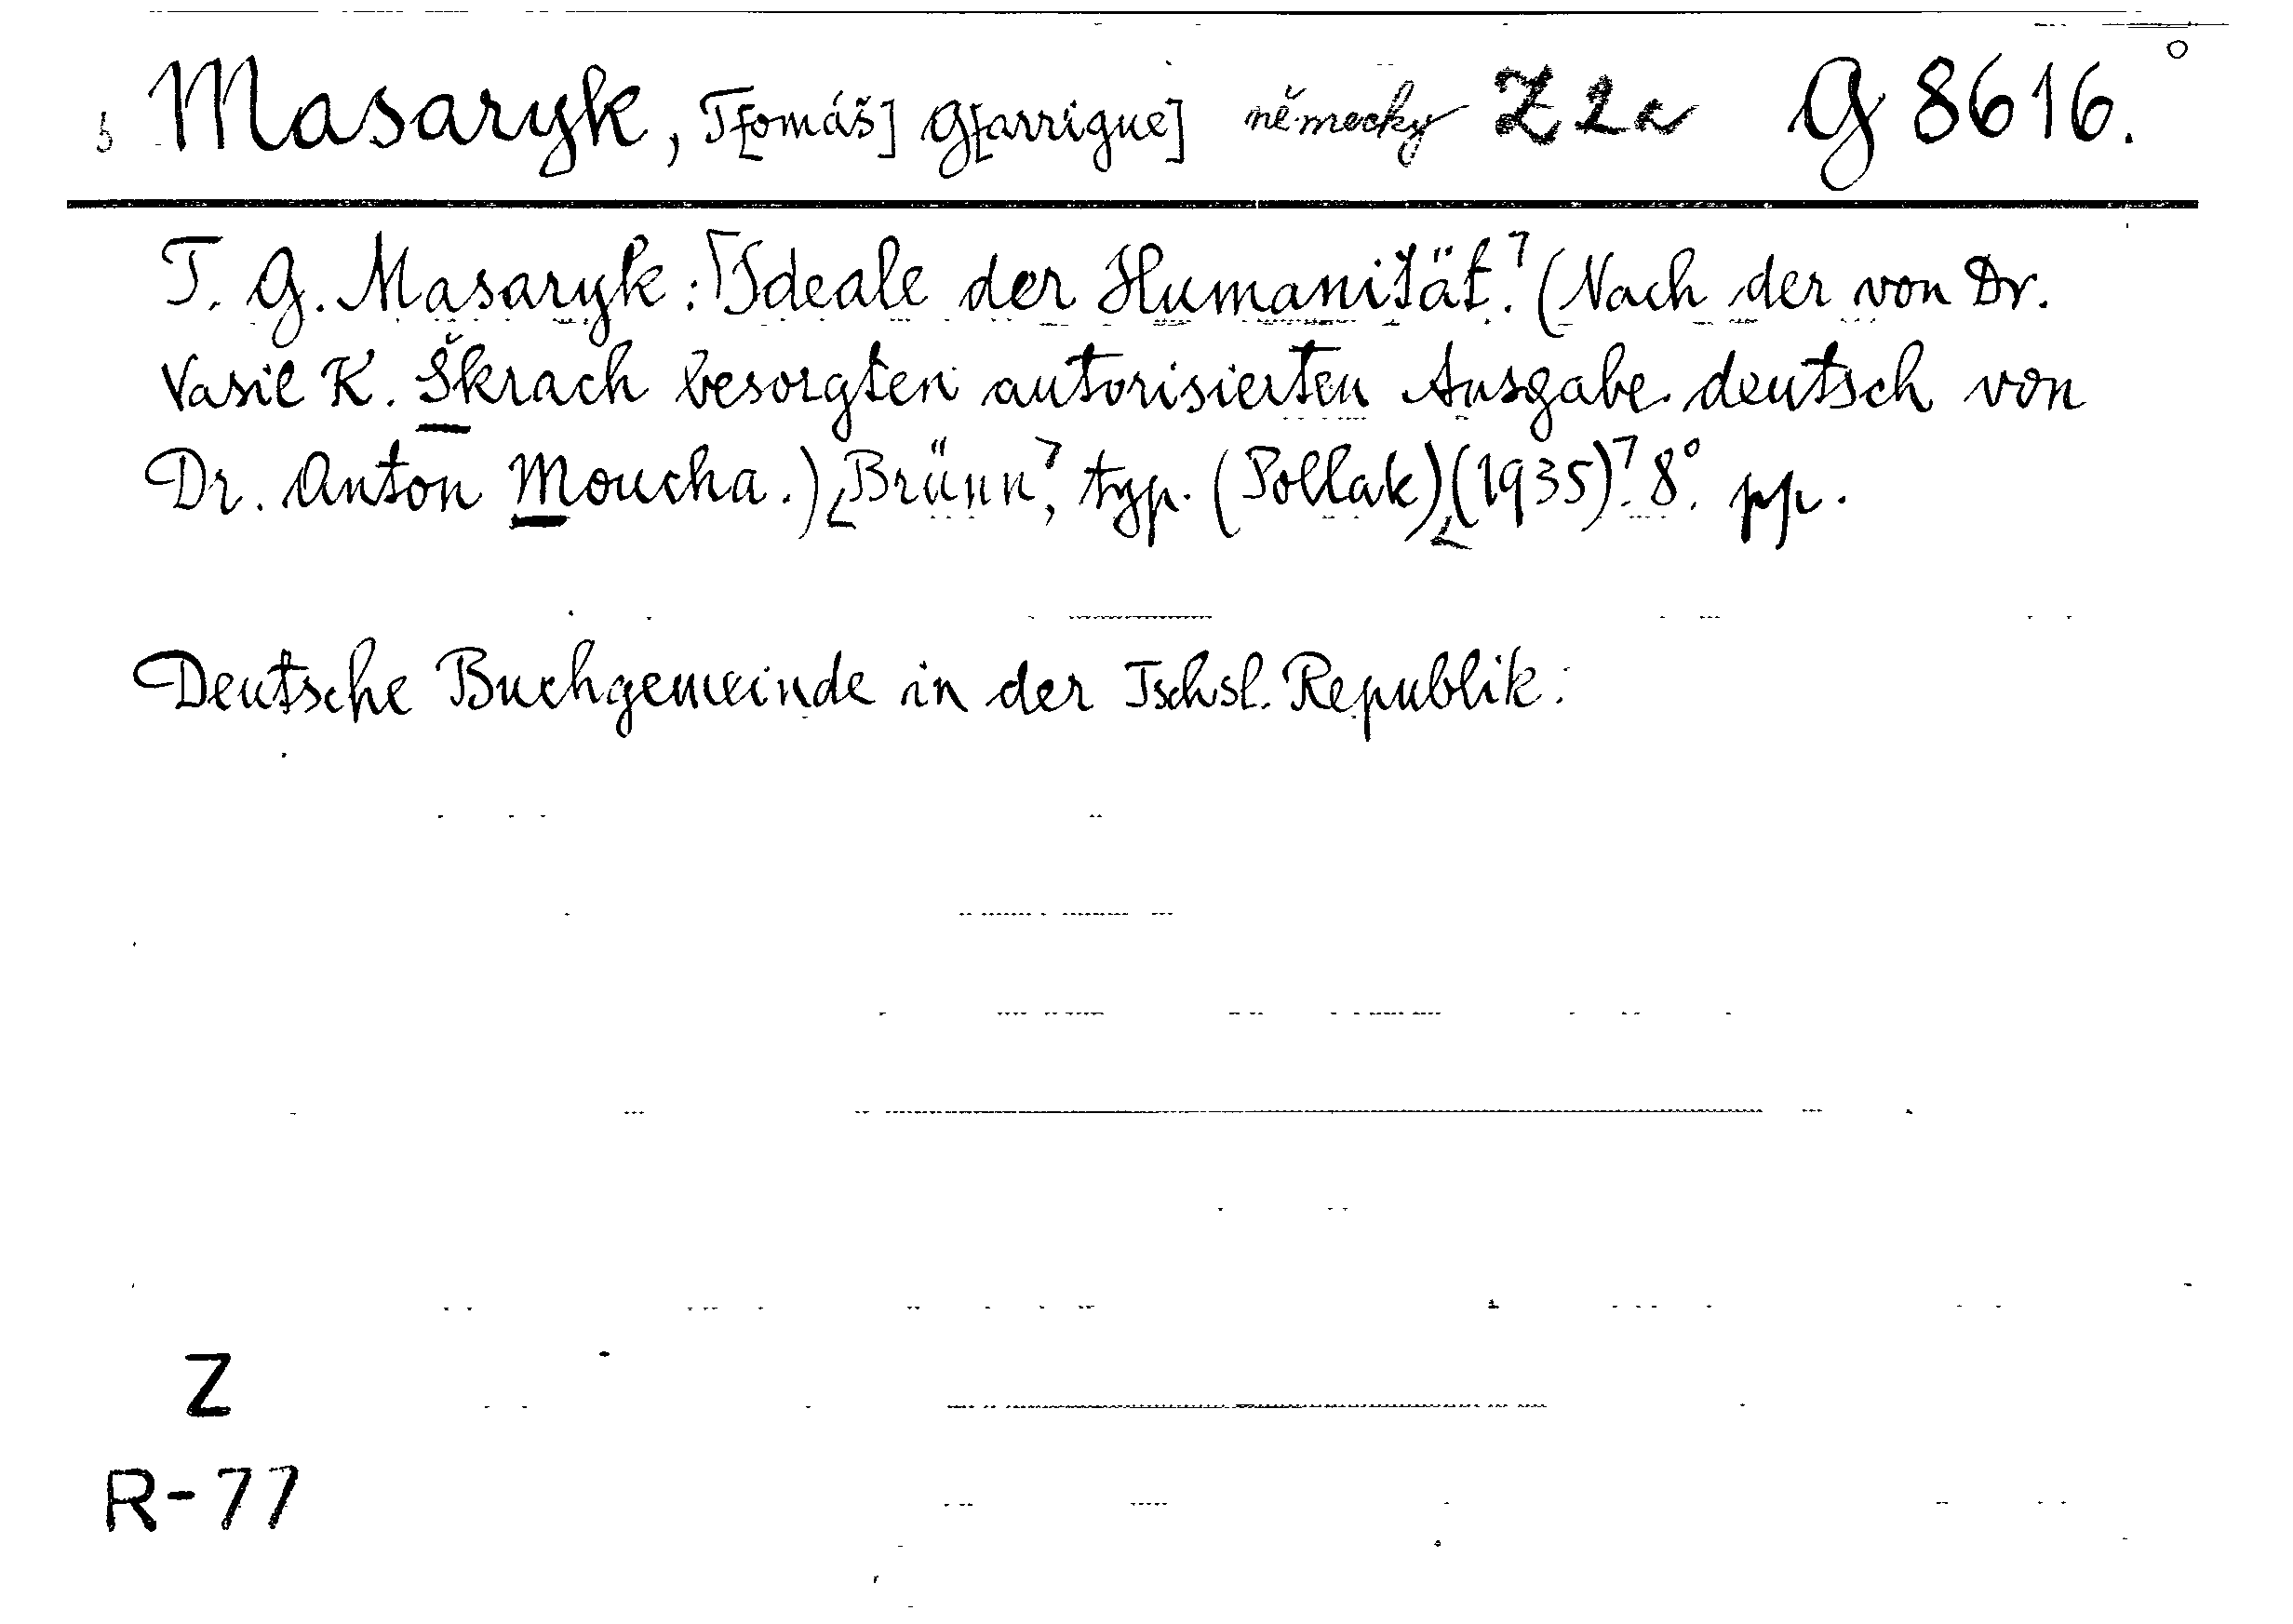 Masaryk, T[omáš] G[arrigue] německy Z 2a G 8616.
T. G. Masaryk: ⌈Ideale der Humanität.⌉ (Nach der von Dr.
Vasil K. Škrach besorgten autorisierten Ausgabe deutsch von
Dr. Anton Moucha.) ⌊Brünn⌉, typ. (Pollak) ⌊(1935)⌉. 8°. pp.
Deutsche Buchgemeinde in der Tschsl. Republik:
Z
R-77